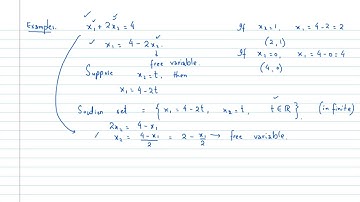 Example:
x₁ + 2x₂ = 4
x₁ = 4 - 2x₂
free variable.
Suppose x₂ = t, then
x₁ = 4 - 2t
Solution set = { x₁ = 4 - 2t, x₂ = t, t ∈ ℝ }. (infinite)
2x₂ = 4 - x₁
x₂ = (4 - x₁)/2 = 2 - x₁/2 → free variable.
If x₂ = 1, x₁ = 4 - 2 = 2
(2, 1)
If x₂ = 0, x₁ = 4 - 0 = 4
(4, 0)